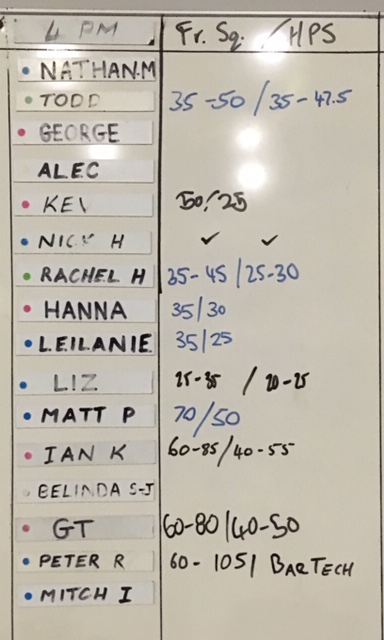 4 PM Fr. Sq. / HPS
NATHAN.M
TODD 35-50 / 35-47.5
GEORGE
ALEC
KEV 50/25
NICK H ✓ ✓
RACHEL H 35-45 / 25-30
HANNA 35/30
LEILANIE 35/25
LIZ 25-35 / 20-25
MATT P 70/50
IAN K 60-85/40-55
BELINDA S-J
GT 60-80/40-50
PETER R 60-105/ BARTECH
MITCH I